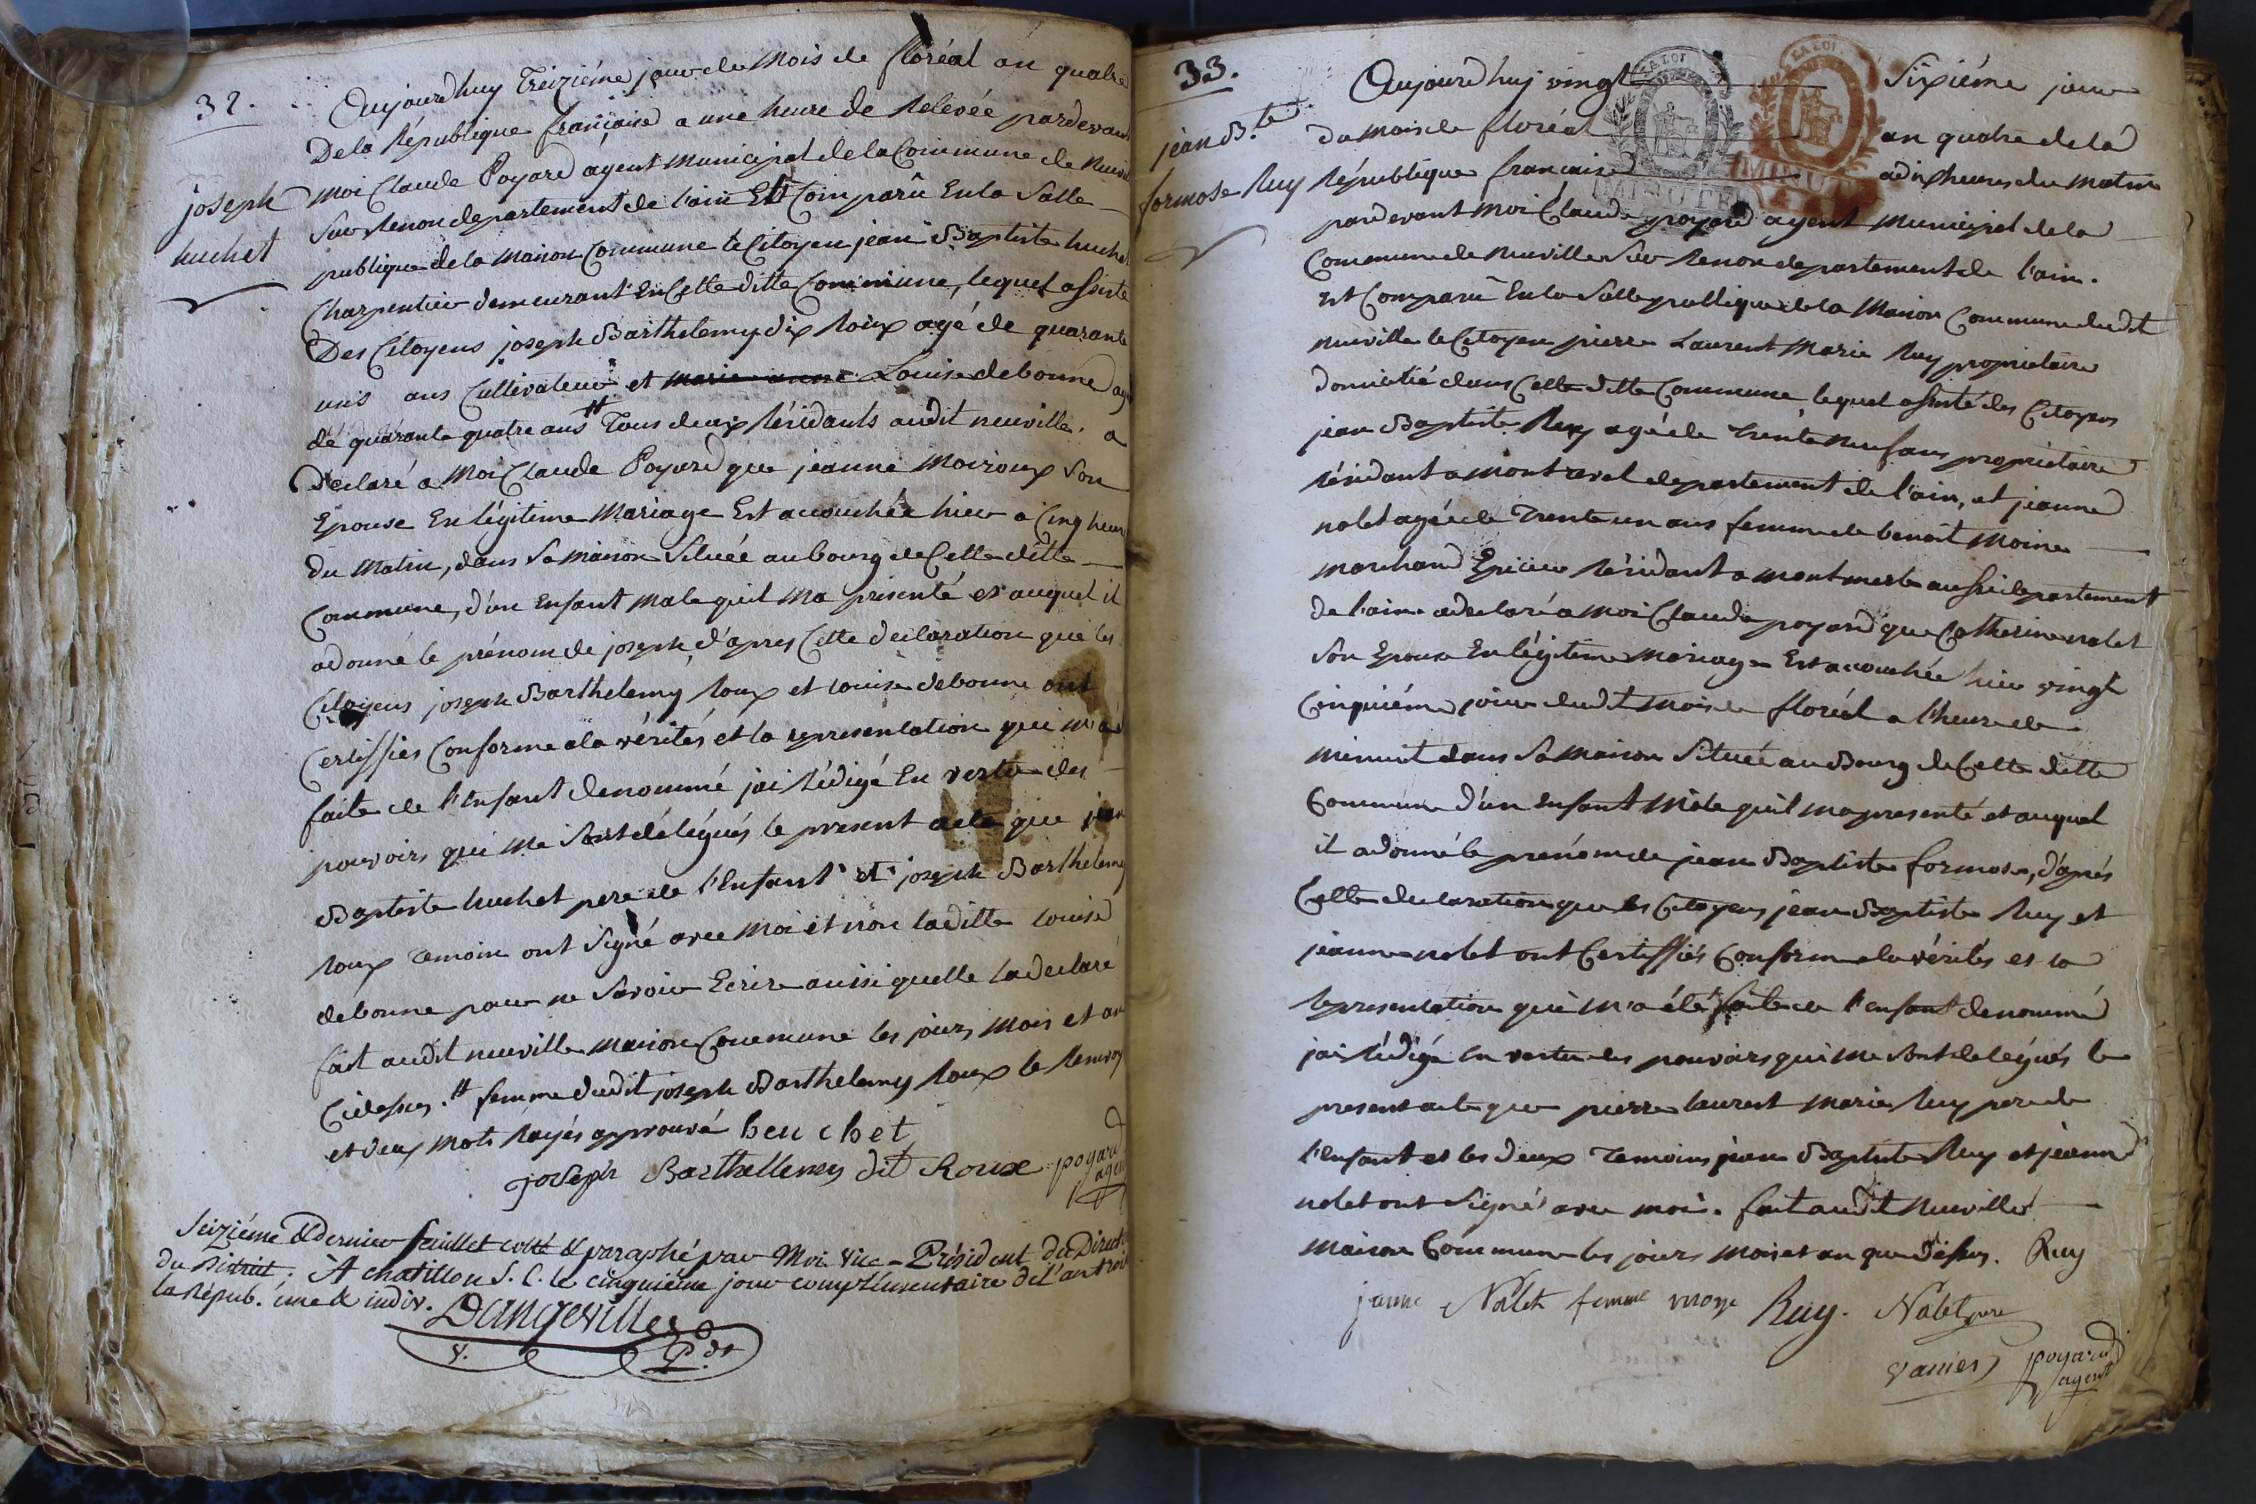 32.
joseph
huchet
Aujourd'huy Treiziéme jour du Mois de floréal an quatre
De la République française a une heure de Relevée pardevant
Moi Claude Poyard agent Municipal de la Commune de Neuville
sur Renon departement de l'ain Est Comparû En la Salle
publique de la Maison Commune le Citoyen jean Baptiste huchet
Charpentier demeurant En Cette ditte Commune, lequel assisté
Des Citoyens joseph Barthelemy dix Roux agé de quarante
ans Cultivateur et marie anne Louise debonne agé
de quarante quatre ans # Tous deux Résidants audit neuville. a
Déclaré a Moi Claude Poyard que jeanne Moiroux Son
Epouse En légitime Mariage Est accouchée hier a Cinq heures
Du Matin, dans Sa Maison Située au bourg de Cette ditte
Commune, d'un Enfant Male quil Ma présenté et auquel il
a donné le prénom de joseph, d'apres Cette declaration que les
Citoyens joseph Barthelemy Roux et Louise debonne ont
Certiffiés Conforme a la vérités et la representation qui m'a
faite de l'Enfant denommé jai Rédigé En vertu des
pouvoirs qui Me Sont délégués le present acte que jean
Baptiste huchet pere de l'Enfant et joseph Barthelemy
Roux Temoin ont Signé avec Moi et non laditte Louise
debonne pour ne Savoir Ecrire ainsi quelle la declaré
fait audit neuville Maison Commune les jours Mois et an
Cidessus. # femme dudit joseph Barthelemy Roux le Renvoy
et deux Mots Rayés approuvé heuchet
joseph Barthellemy dit Roux poyard
agent
Seizième & dernier feuillet cotté & paraphé par Moi Vice-Président du Direct.
du District, A Chatillon S. C. le cinquième jour complémentaire de l'an trois
la Répub. une & indiv. Dangeville
V. P.dt
33.
jean B.te
formose Ruy
LA LOI
MINUTE
LA LOI
MINUTE
Aujourd'huy vingt Sixiéme jour
du Mois de floréal an quatre de la
République française a dix heures du Matin
pardevant Moi Claude poyard agent Municipal de la
Commune de Neuville Sur Renon departement de l'ain.
Est Comparû En la Salle publique de la Maison Commune dudit
Neuville le Citoyen pierre Laurent Marie Ruy propriétaire
domicilié dans Cette ditte Commune lequel assisté des Citoyens
jean Baptiste Ruy agé de Trente neuf ans propriétaire
Résidant a Montrevel departement de l'ain, et jeanne
nolet agée de Trente un ans femme de benoit Moine
Marchand Epicier Résidant a Montmerle aussi departement
de l'ain a declaré a Moi Claude poyard que Catherine nolet
Son Epouse En légitime Mariage Est accouchée hier vingt
Cinquiéme jour dudit Mois de floréal a l'heure de
minuit dans Sa Maison Située au Bourg de Cette ditte
Commune d'un Enfant Mâle quil ma presenté et auquel
il a donné le prénom de jean Baptiste formose, d'aprés
Cette declaration que les Citoyens jean Baptiste Ruy et
jeanne nolet ont Certiffiés Conforme a la vérités et la
representation qui m'a été faite de l'enfant denommé
jai Rédigé En vertu des pouvoirs qui Me Sont delégués le
present acte que pierre laurent Marie Ruy pere de
l'Enfant et les deux Temoins jean Baptiste Ruy et jeanne
nolet ont Signé avec moi. fait audit Neuville
Maison Commune les jours Mois et an que dessus. Ruy
janne Nolet femme Ruy. Nolet pere
poyard
agent